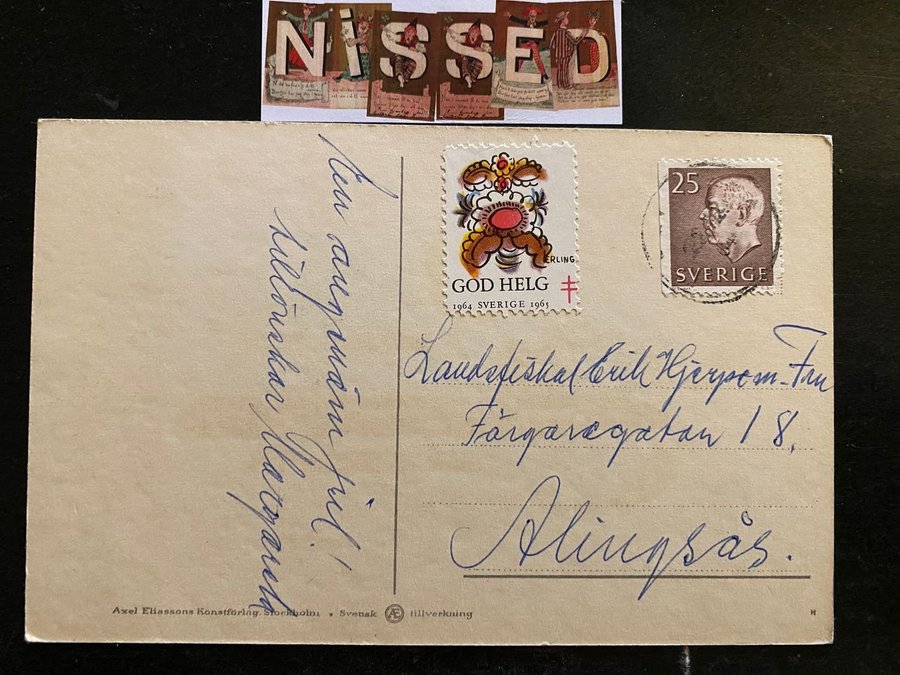 NISSED
En angenäm jul!
tillönskar Margareta
ERLING
GOD HELG
1964 SVERIGE 1965
25
SVERIGE
Landsfiskal Erik Hjerpe m. Fru
Färgaregatan 18,
Alingsås.
Axel Eliassons Konstförlag. Stockholm • Svensk ÆE tillverkning
H